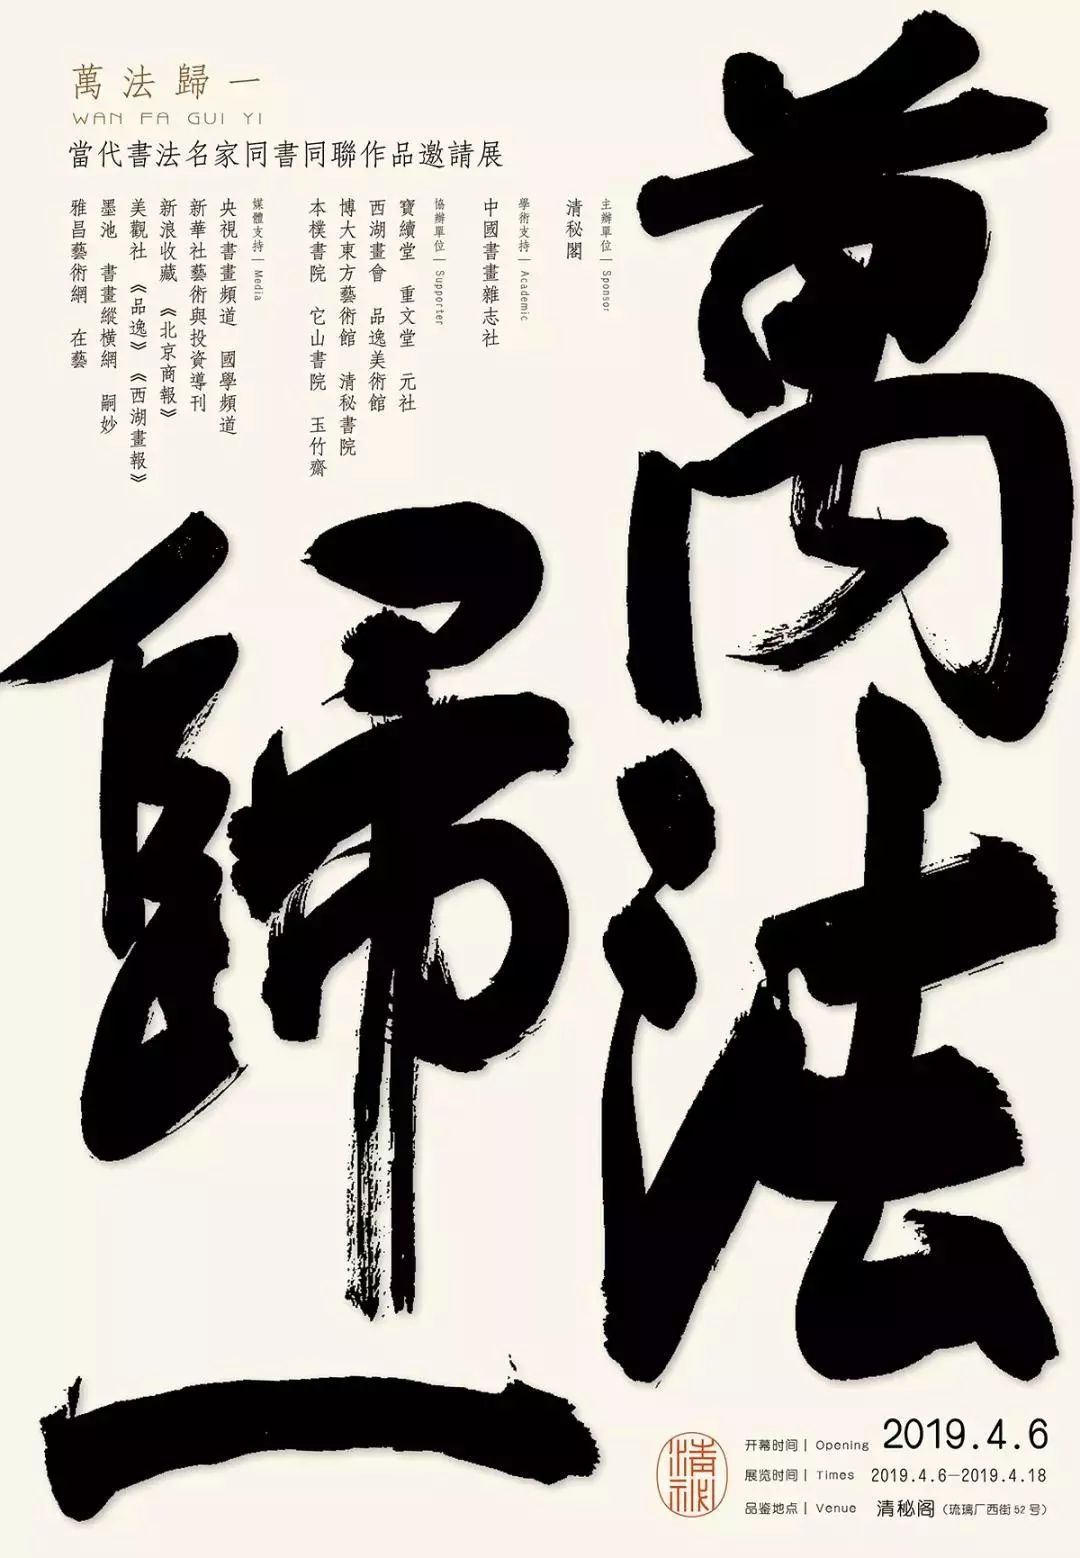 萬法歸一
WAN FA GUI YI
當代書法名家同書同聯作品邀請展
主辦單位 | Sponsor
清秘閣
學術支持 | Academic
中國書畫雜志社
協辦單位 | Supporter
寶續堂 重文堂 元社
西湖畫會 品逸美術館
博大東方藝術館 清秘書院
本樸書院 它山書院 玉竹齋
媒體支持 | Media
央視書畫頻道 國學頻道
新華社藝術與投資導刊
新浪收藏 《北京商報》
美觀社 《品逸》《西湖畫報》
墨池 書畫縱橫網 嗣妙
雅昌藝術網 在藝
萬法
歸一
清秘
开幕时间 | Opening 2019.4.6
展览时间 | Times 2019.4.6—2019.4.18
品鉴地点 | Venue 清秘阁（琉璃厂西街52号）